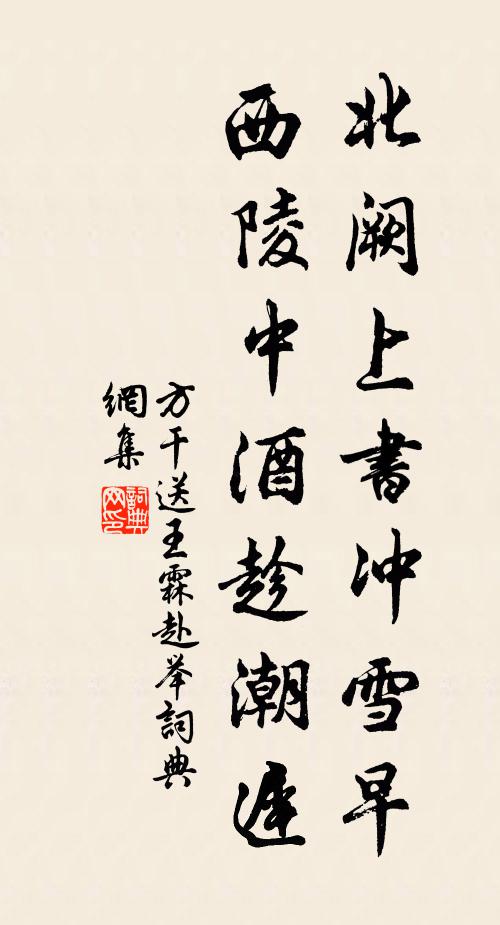 北阙上書冲雪早
西陵中酒趁潮遲
方干送王霖赴举詞典
網集
詞典
网印